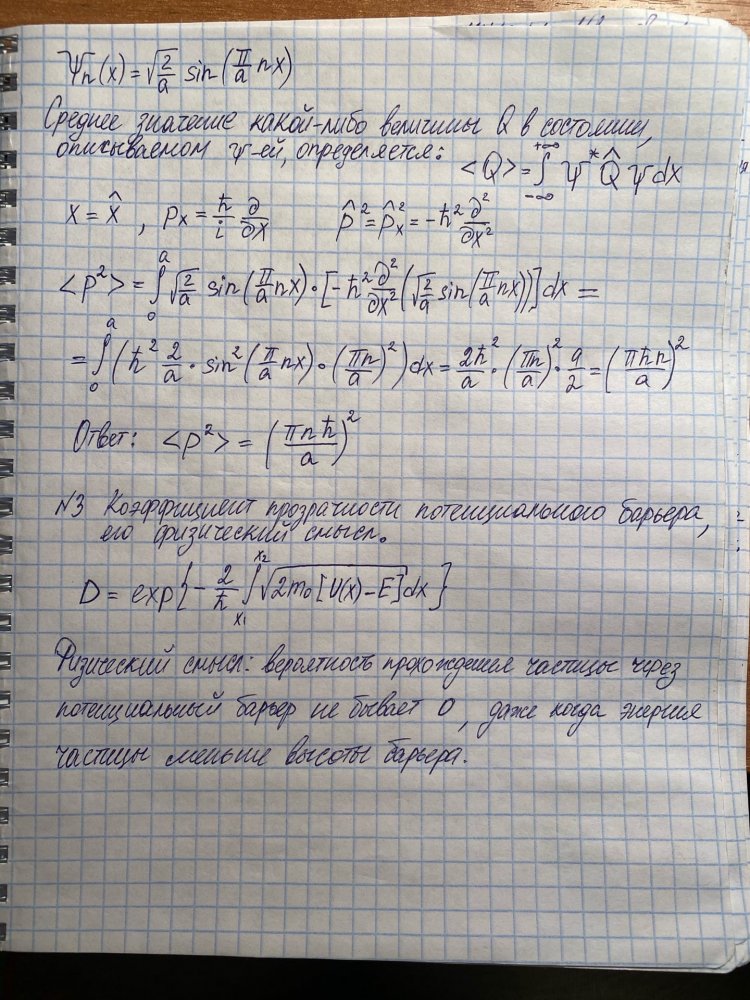 Ψn(x) = √(2/a) sin(π/a nx)
Среднее значение какой-либо величины Q в состоянии,
описываемом ψ-ей, определяется: <Q> = ∫_{-∞}^{+∞} ψ* Q̂ ψ dx
x = x̂ , pₓ = ħ/i ∂/∂x p̂² = p̂ₓ² = -ħ² ∂²/∂x²
<p²> = ∫₀ᵃ √(2/a) sin(π/a nx) · [-ħ² ∂²/∂x² (√(2/a) sin(π/a nx))] dx =
= ∫₀ᵃ (ħ² 2/a · sin²(π/a nx) · (πn/a)²) dx = 2ħ²/a · (πn/a)² · a/2 = (πħn/a)²
Ответ: <p²> = (πnħ/a)²
№3 Коэффициент прозрачности потенциального барьера,
его физический смысл.
D = exp{-2/ħ ∫_{x₁}^{x₂} √(2m₀[U(x)-E]) dx}
Физический смысл: вероятность прохождения частицы через
потенциальный барьер не бывает 0, даже когда энергия
частицы меньше высоты барьера.